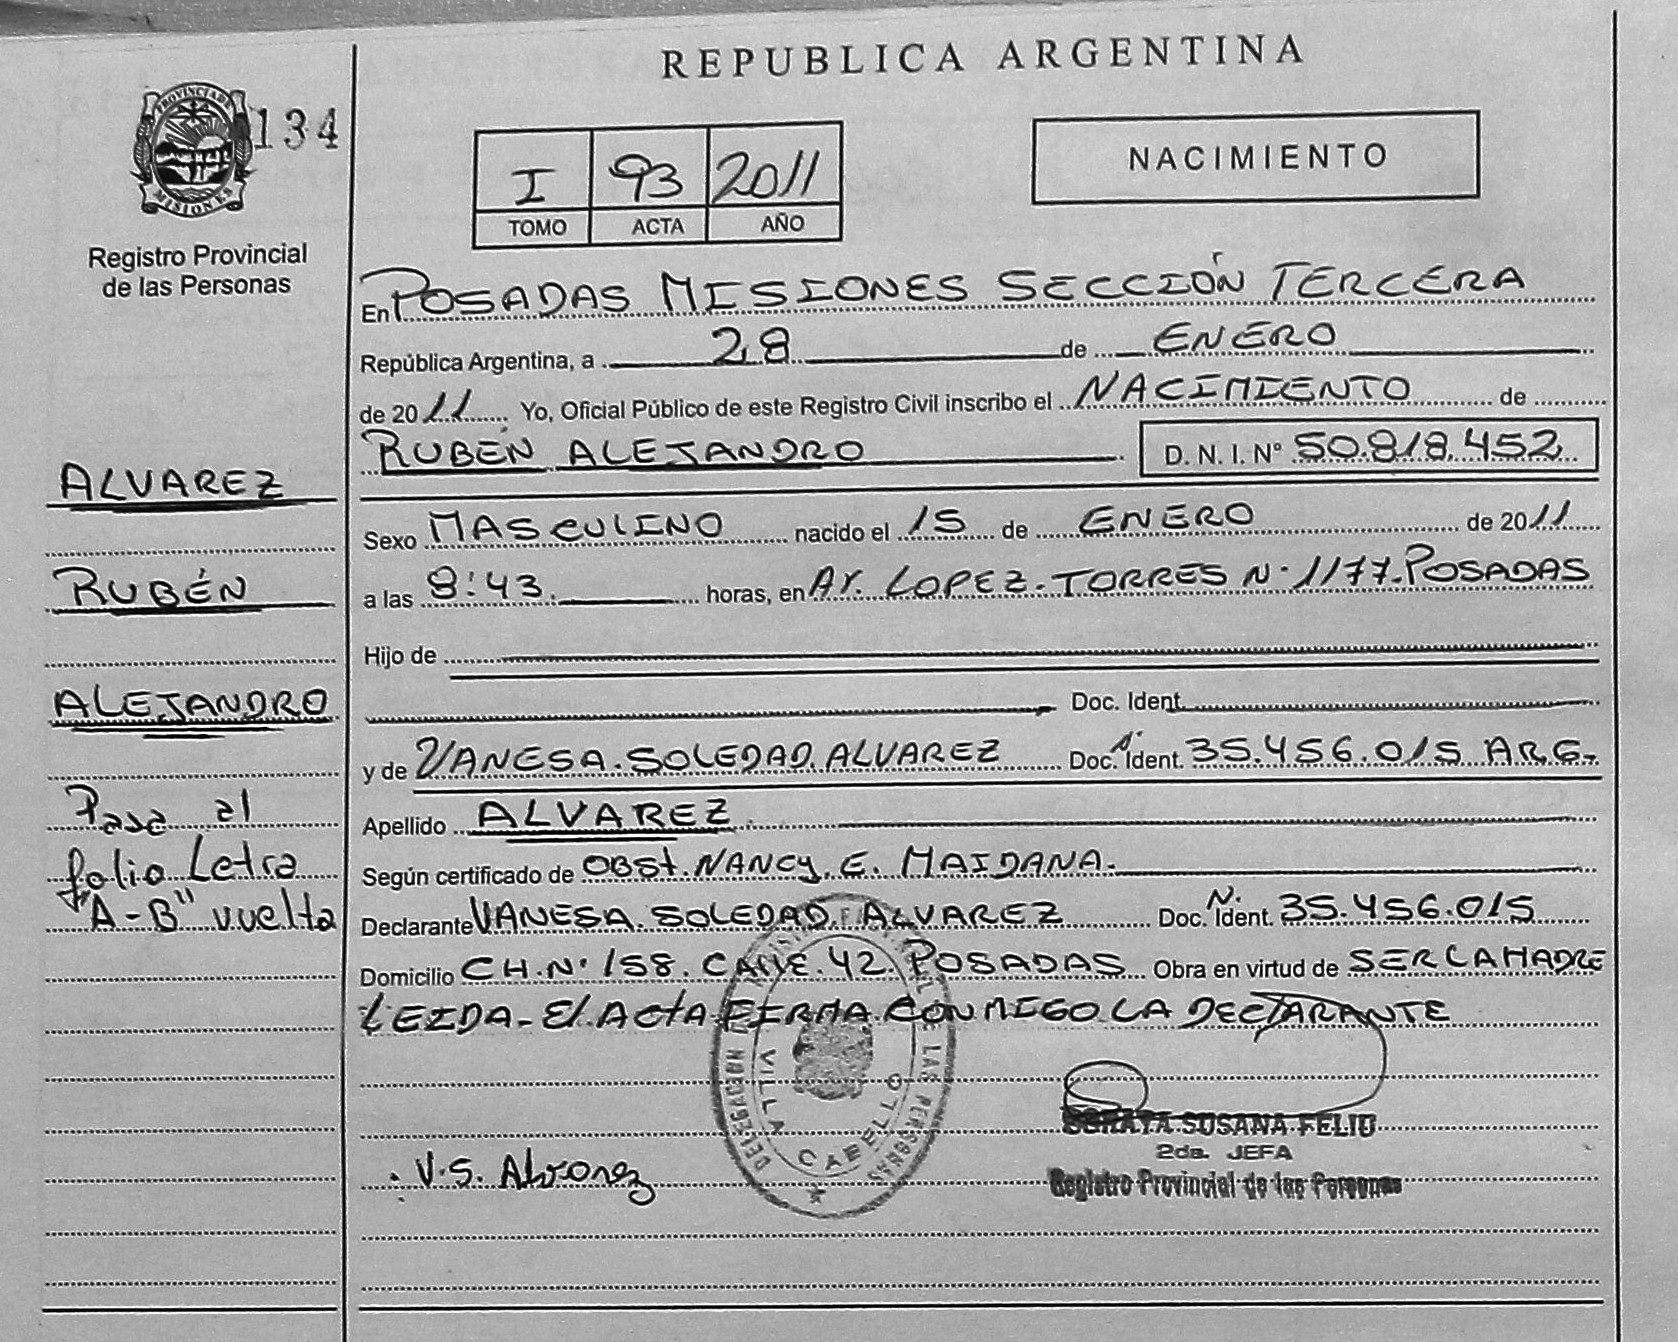 REPUBLICA ARGENTINA
PROVINCIA DE
MISIONES
134
Registro Provincial
de las Personas
I 93 2011
TOMO ACTA AÑO
NACIMIENTO
En POSADAS MISIONES SECCIÓN TERCERA
República Argentina, a 28 de ENERO
de 2011 Yo, Oficial Público de este Registro Civil inscribo el NACIMIENTO de
RUBÉN ALEJANDRO D. N. I. Nº 50.818.452
Sexo MASCULINO nacido el 15 de ENERO de 2011
a las 8:43 horas, en AV. LOPEZ TORRES N° 1177 POSADAS
Hijo de
Doc. Ident.
y de VANESA SOLEDAD ALVAREZ Doc. Ident. 35.456.015 ARG.
Apellido ALVAREZ
Según certificado de OBSt. NANCY E. MAIDANA.
Declarante VANESA SOLEDAD ALVAREZ Doc. N. Ident. 35.456.015
Domicilio CH. N° 158. CALLE 42. POSADAS Obra en virtud de SER LA MADRE
LEIDA El ACtA FIRMA CONMIGO LA DECLARANTE
ALVAREZ
RUBÉN
ALEJANDRO
Pasa al
folio Letra
"A-B" vuelta
DELEGACION VILLA CABELLO
DE LAS PERSONAS
V.S. Alvarez
SORAYA SUSANA FELIU
2da. JEFA
Registro Provincial de las Personas